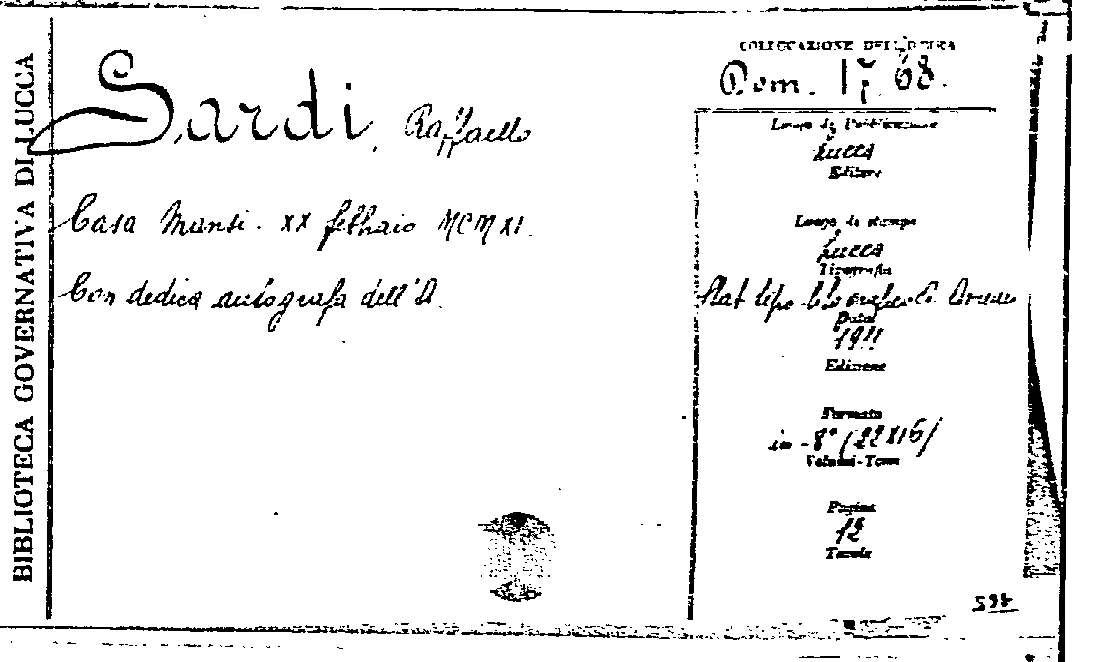 BIBLIOTECA GOVERNATIVA DI LUCCA
Sardi, Raffaello
Casa Mansi. XX febbraio MCMXI.
Con dedica autografa dell'A.
COLLOCAZIONE DELL'OPERA
Dom. 17, 68.
Luogo di Pubblicazione
Lucca
Editore
Luogo di stampa
Lucca
Tipografia
Stab tipo
Data
1911
Edizione
Formato
in-8° (22X16)
Volumi-Tomi
Pagine
12
Tavole